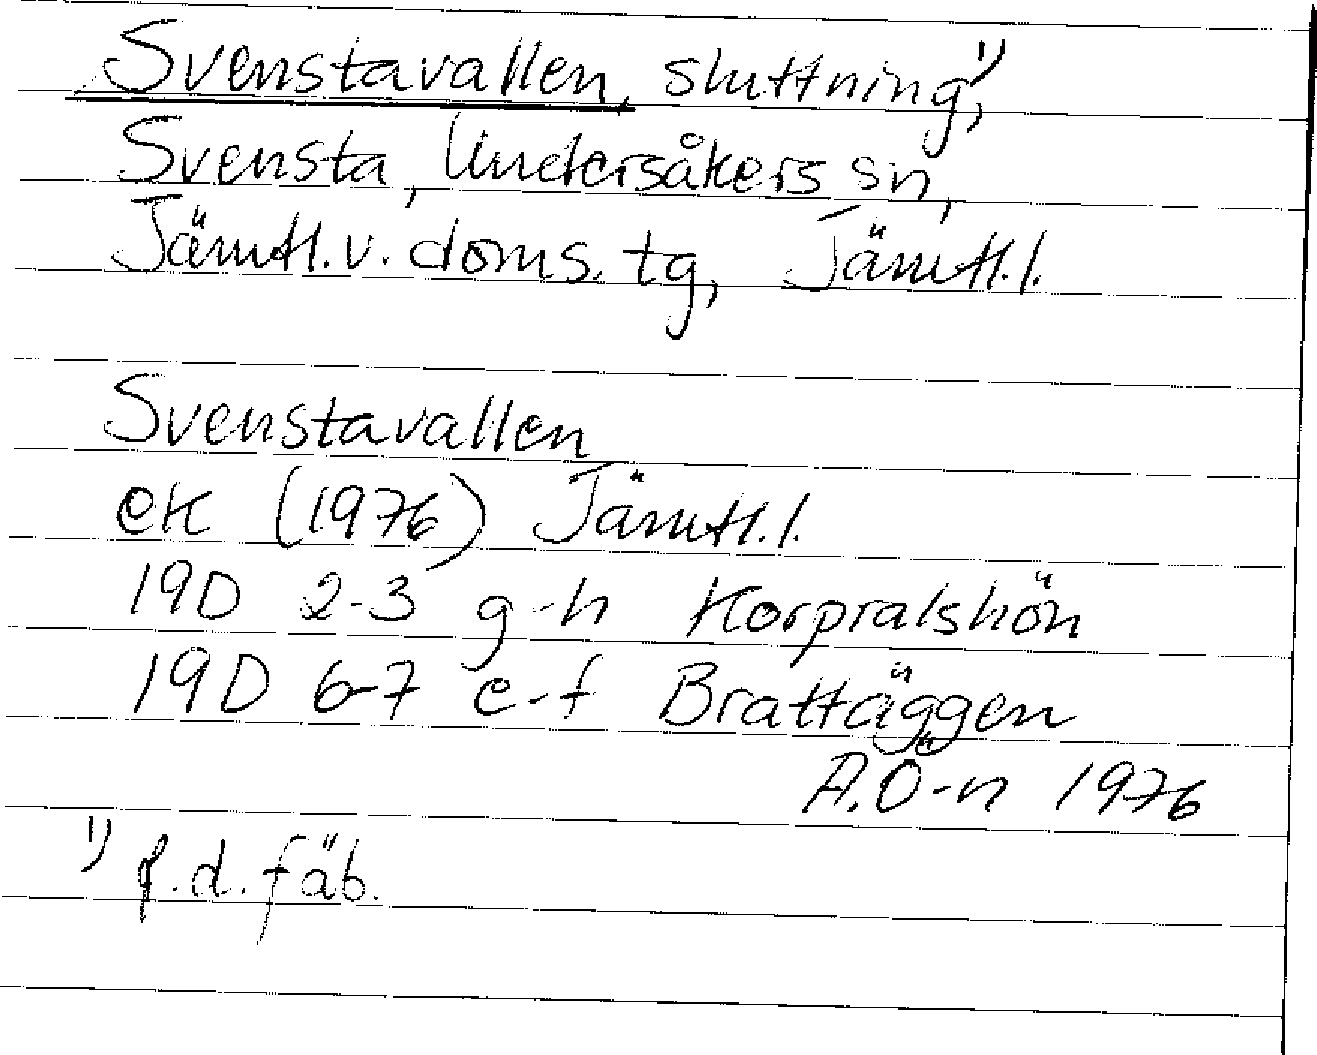 Svenstavallen, sluttning,¹⁾
Svensta, Undersåkers sn,
Jämtl. v. doms. tg, Jämtl. l.
Svenstavallen
ek (1976) Jämtl. l.
19D 2-3 g-h Korpralskön
19D 6-7 e-f Brattäggen
A.Ö-n 1976
¹⁾ f.d. fäb.